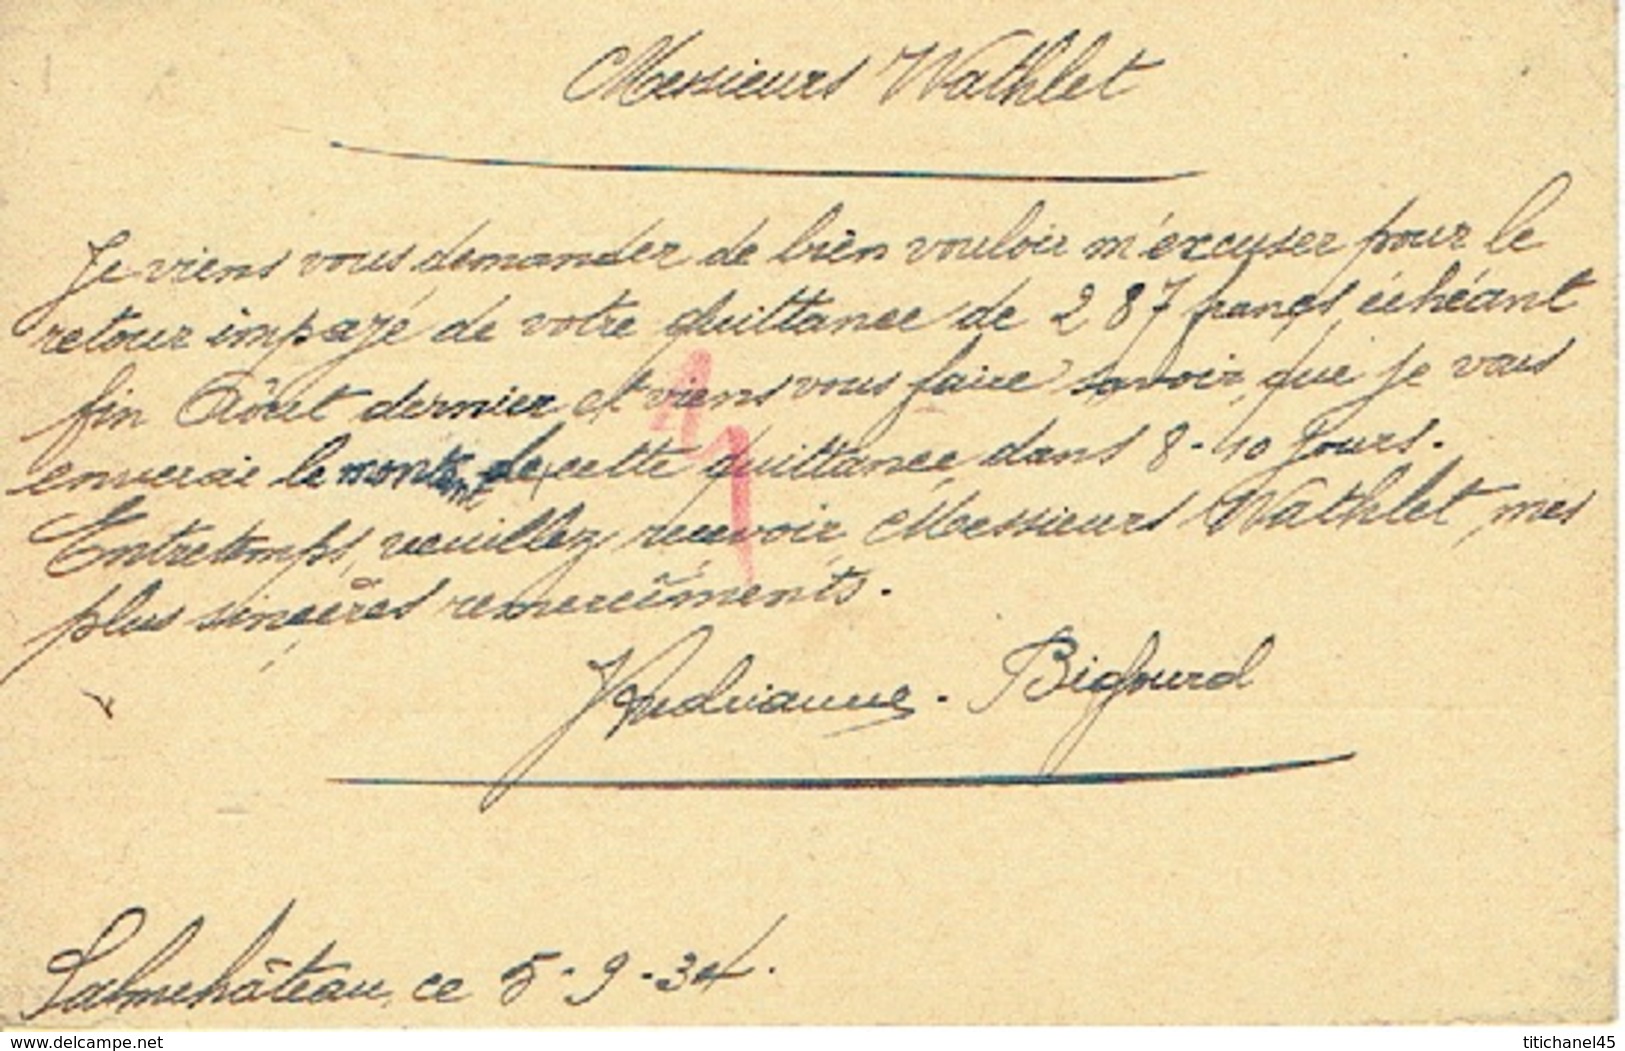 Messieurs Wathlet
Je viens vous demander de bien vouloir m'excuser pour le
retour impayé de votre quittance de 287 francs, échéant
fin Août dernier et viens vous faire savoir, que je vous
enverai le montant de cette quittance, dans 8-10 jours.
Entretemps, veuillez, recevoir Messieurs Wathlet, mes
plus sincères remercîments.
Bigourd
Salmchâteau, ce 5-9-34.
www.delcampe.net
titichanel45